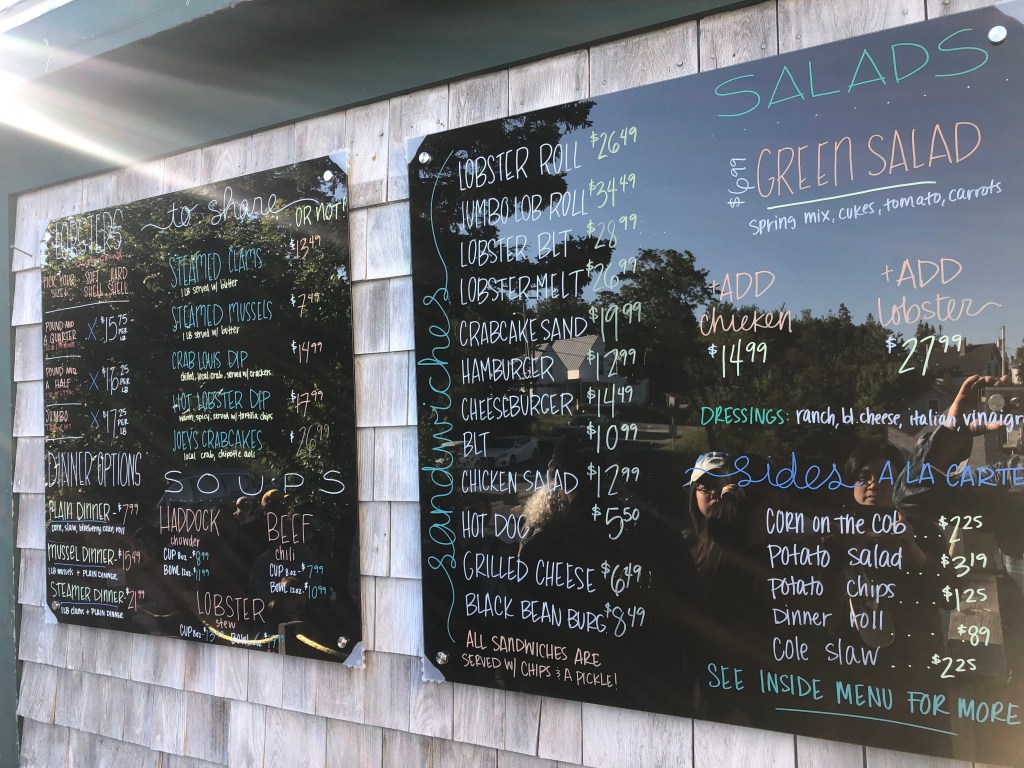 LOBSTERS
PICK YOUR SIZE! SOFT SHELL HARD SHELL
POUND AND A QUARTER X $15.75 PER LB
POUND AND A HALF X $16.25 PER LB
JUMBO X $17.25 PER LB
DINNER OPTIONS
PLAIN DINNER - $7.99
corn, slaw, blueberry cake, roll
MUSSEL DINNER - $15.49
1 LB mussels + PLAIN DINNER
STEAMER DINNER - $21.99
1 LB clams + PLAIN DINNER
to share OR NOT!
STEAMED CLAMS $13.49
1 LB served w/ butter
STEAMED MUSSELS $7.49
1 LB served w/ butter
CRAB LOUIS DIP $14.99
chilled, local crab, served w/ crackers
HOT LOBSTER DIP $17.99
warm, spicy, served w/ tortilla chips
JOEY'S CRABCAKES $26.99
local crab, chipotle aoli
SOUPS
HADDOCK
chowder
CUP 8 oz - $8.99
BOWL 12oz -
BEEF
chili
CUP 8 oz - $7.99
BOWL 12oz - $10.99
LOBSTER
stew
CUP 8oz -
BOWL
sandwiches
LOBSTER ROLL $26.49
JUMBO LOB ROLL $34.49
LOBSTER BLT $28.99
LOBSTER MELT $26.99
CRABCAKE SAND $19.99
HAMBURGER $12.99
CHEESEBURGER $14.49
BLT $10.99
CHICKEN SALAD $12.99
HOT DOG $5.50
GRILLED CHEESE $6.49
BLACK BEAN BURG $8.49
ALL SANDWICHES ARE
SERVED W/ CHIPS & A PICKLE!
SALADS
$6.99 GREEN SALAD
spring mix, cukes, tomato, carrots
+ADD
chicken
$14.99
+ADD
lobster
$27.99
DRESSINGS: ranch, bl. cheese, italian, vinaigr
~sides~ A LA CARTE
CORN ON THE COB ... $2.25
Potato salad ... $3.19
Potato chips ... $1.25
Dinner Roll .... $.89
Cole slaw ... $2.25
SEE INSIDE MENU FOR MORE